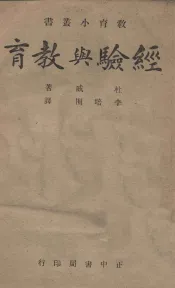 教育小叢書
經驗與教育
杜威 著
李培囿 譯
正中書局印行